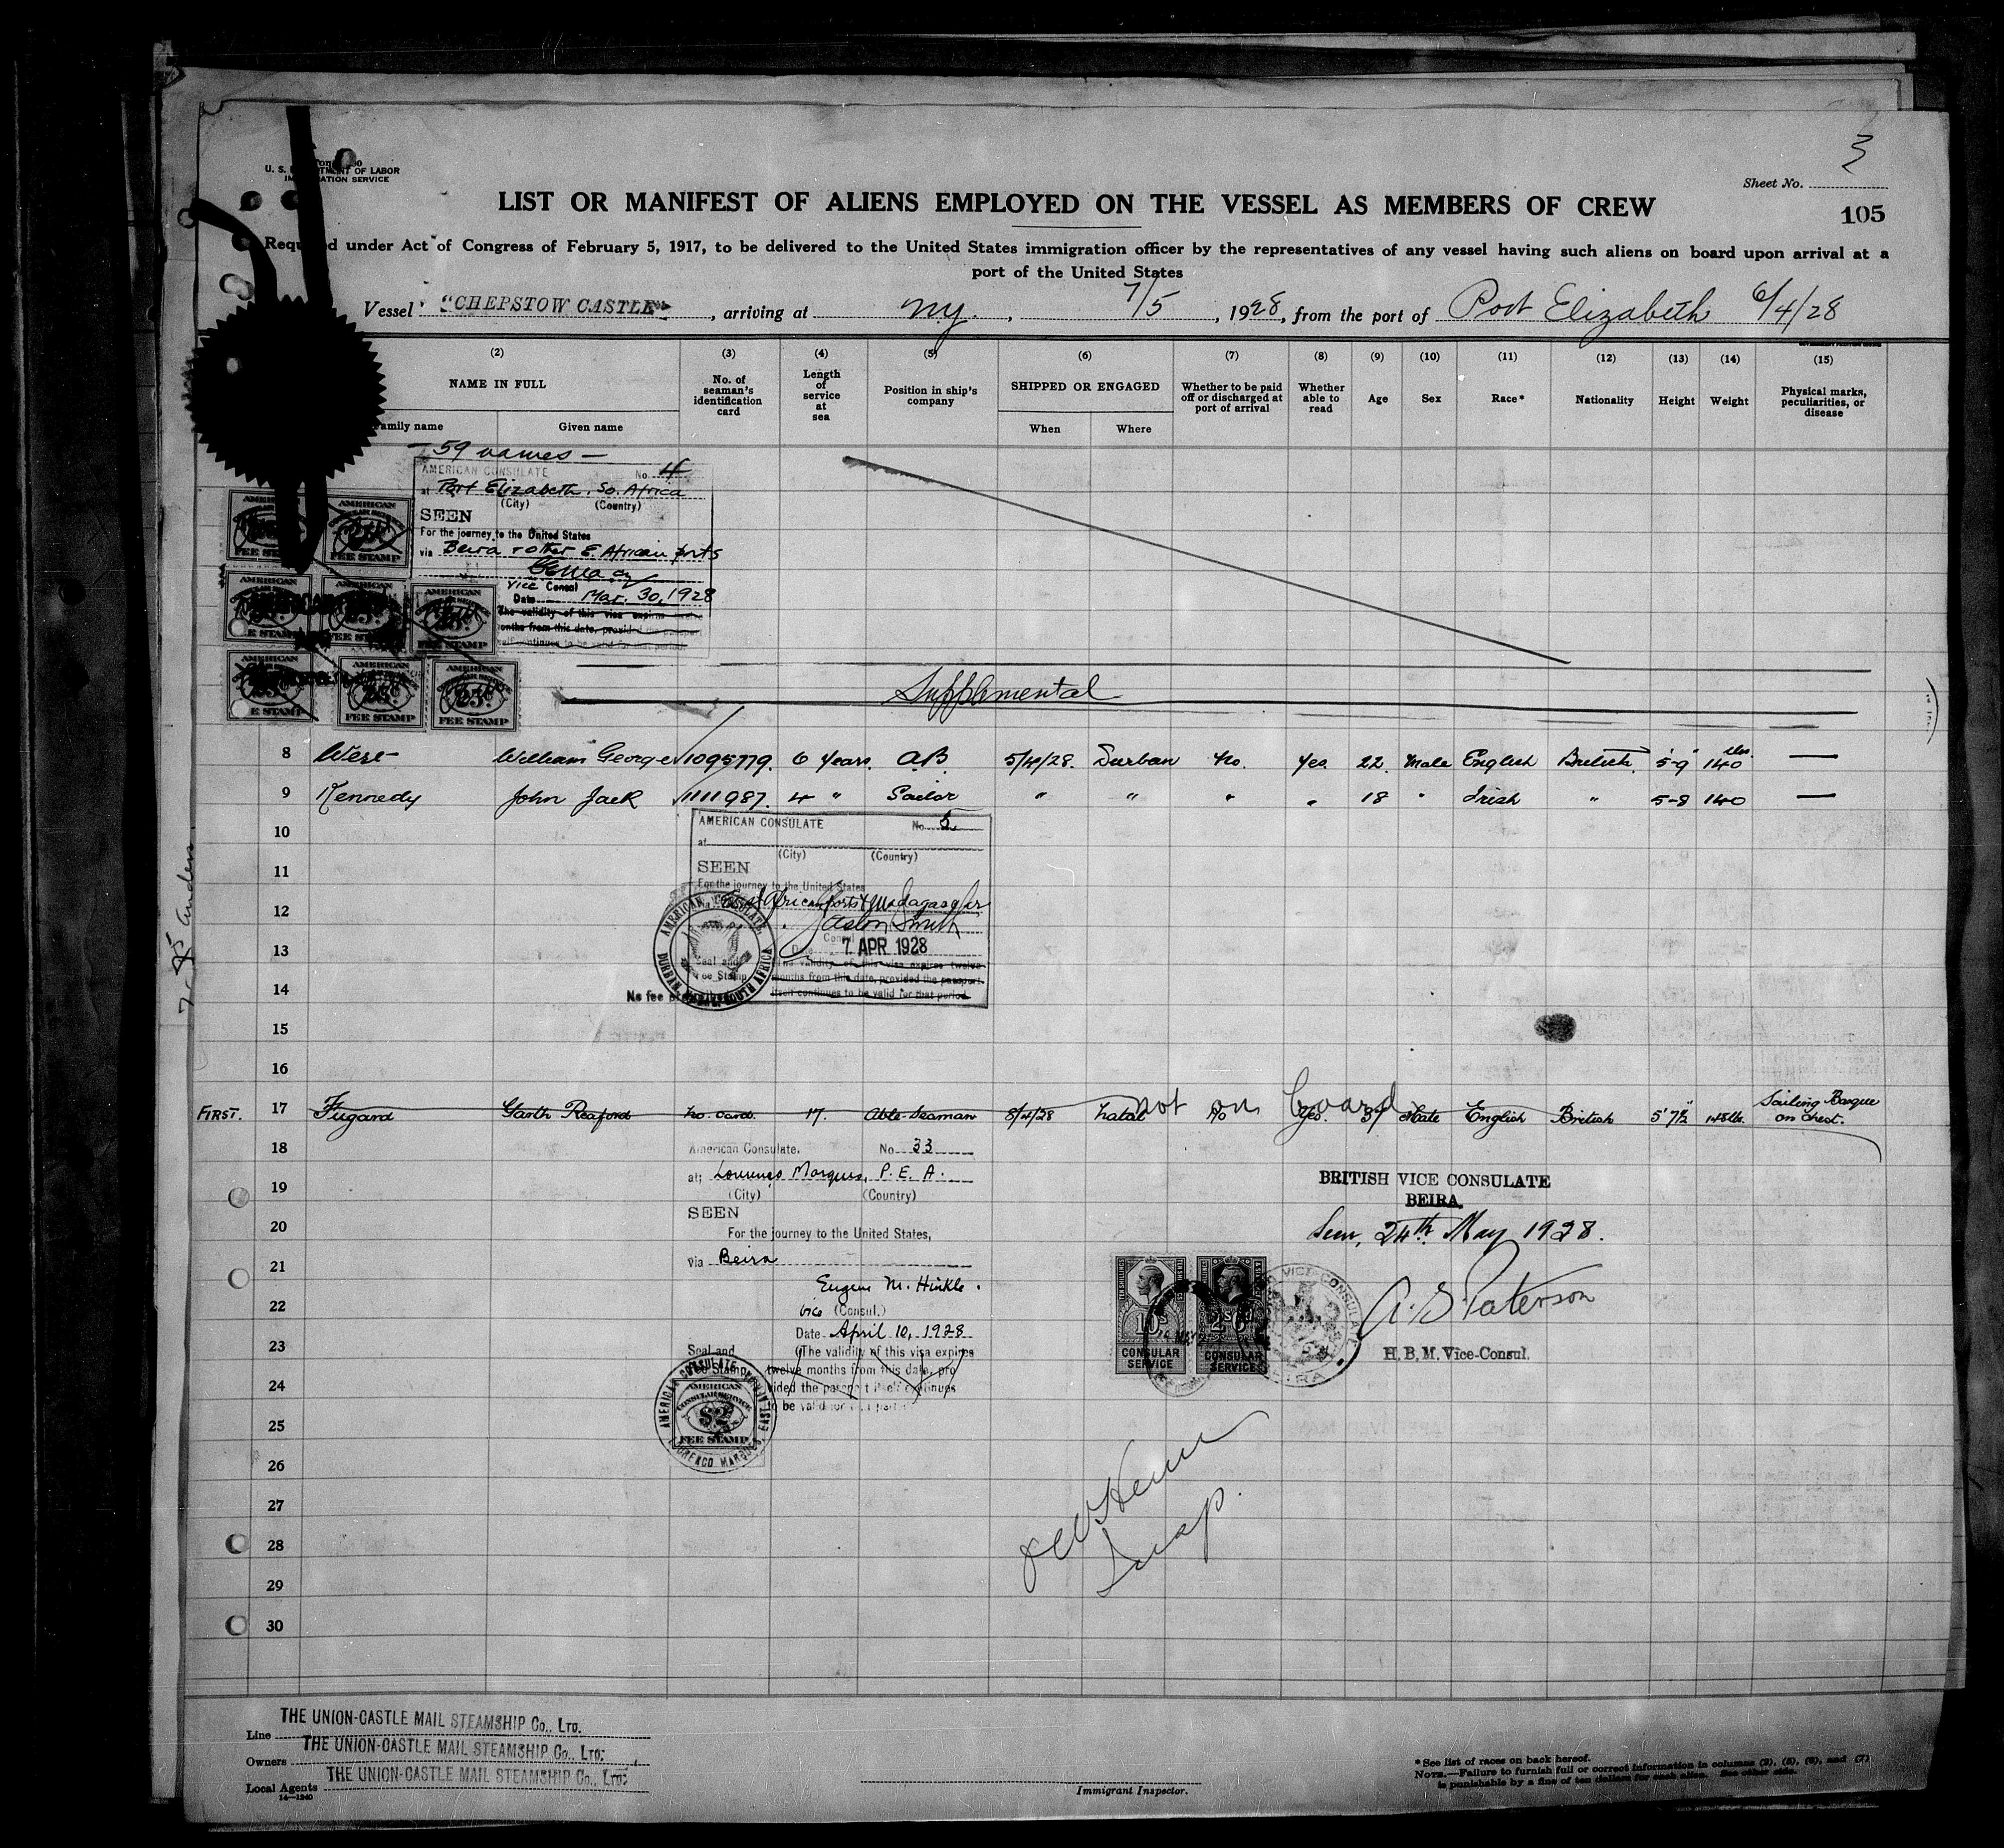 U. S. DEPARTMENT OF LABOR
IMMIGRATION SERVICE
3
Sheet No.
105
LIST OR MANIFEST OF ALIENS EMPLOYED ON THE VESSEL AS MEMBERS OF CREW
Required under Act of Congress of February 5, 1917, to be delivered to the United States immigration officer by the representatives of any vessel having such aliens on board upon arrival at a
port of the United States
Vessel CHEPSTOW CASTLE, arriving at N.Y., 7/5, 1928, from the port of Port Elizabeth 6/4/28
(2) (3) (4) (5) (6) (7) (8) (9) (10) (11) (12) (13) (14) (15)
NAME IN FULL
Family name Given name
No. of seaman's identification card
Length of service at sea
Position in ship's company
SHIPPED OR ENGAGED
When Where
Whether to be paid off or discharged at port of arrival
Whether able to read
Age
Sex
Race*
Nationality
Height
Weight
Physical marks, peculiarities, or disease
— 59 names —
AMERICAN CONSULATE No. 4
at Port Elizabeth, So. Africa
(City) (Country)
SEEN
For the journey to the United States
via Beira + other E. African ports
Vice Consul
Date Mar. 30, 1928
The validity of this visa expires twelve
months from this date, provided the passport
itself continues to be valid for that period.
AMERICAN CONSULAR SERVICE
FEE STAMP
Supplemental
8 West William George 1095779. 6 Years. A.B. 5/4/28. Durban No. Yes 22. Male English British. 5-9" 140 lbs —
9 Kennedy John Jack 1111987. 4 " Sailor " " " " 18 " Irish " 5-8 140 —
10
AMERICAN CONSULATE No. 5
at
(City) (Country)
11
SEEN
For the journey to the United States
12
via East African ports & Madagascar
Gaston Smith
Consul
13
Date 7 APR 1928
Seal and
Fee Stamp
The validity of this visa expires twelve
months from this date, provided the passport
itself continues to be valid for that period.
14
No fee prescribed
AMERICAN CONSULATE, DURBAN, NATAL, SOUTH AFRICA
15
16
not on board
FIRST. 17 Fugard Garth Reaford no card. 17. Able Seaman 8/4/28 Natal No Yes. 37 Male English British 5' 7½" 148 lbs. Sailing Barque
on chest.
18
American Consulate. No 33
at; Lourenço Marques, P. E. A.
19
(City) (Country)
SEEN
20
For the journey to the United States,
21
via Beira
Eugene M. Hinkle.
22
Vice (Consul.)
Date April 10, 1928
23
Seal and
Fee Stamp
(The validity of this visa expires
twelve months from this date, pro
24
vided the passport itself continues
25
to be valid for that period
AMERICAN CONSULAR SERVICE
$2
FEE STAMP
26
27
28
29
30
BRITISH VICE CONSULATE
BEIRA.
Seen, 24th May 1928.
10s
2s6d
CONSULAR
SERVICE
CONSULAR
SERVICE
A. S. Paterson
H. B. M. Vice-Consul.
Insp.
Line THE UNION-CASTLE MAIL STEAMSHIP Co., LTD.
Owners THE UNION-CASTLE MAIL STEAMSHIP Co., LTD.
Local Agents THE UNION-CASTLE MAIL STEAMSHIP Co., LTD.
14—1240
Immigrant Inspector.
* See list of races on back hereof.
NOTE.—Failure to furnish full or correct information in columns (2), (5), (6), and (7)
is punishable by a fine of ten dollars for each alien. See other side.